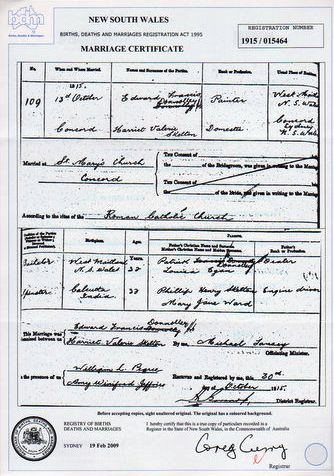 NEW SOUTH WALES
BIRTHS, DEATHS AND MARRIAGES REGISTRATION ACT 1995
MARRIAGE CERTIFICATE
REGISTRATION NUMBER
1915 / 015464
bdm
Births, Deaths & Marriages
No. When and Where Married. Names and Surnames of the Parties. Rank or Profession. Usual Place of
1915.
109 13th October Edward Francis Painter West
Donnelley N. S. Wales
Concord Harriet Valerie Skelton Domestic Concord
Sydney
N. S. Wales
Married at St. Mary's Church
Concord
The Consent of
of the Bridegroom, was given in writing to the
The Consent of
of the Bride, was given in writing to the
According to the rites of the Roman Catholic Church
Birthplace. Age. Parents.
Years
Father's Christian Name and Surname.
Mother's Christian Name and Maiden Surname.
Father's Rank or Profession.
Bachelor West Maitland 32 Patrick Donnelley Dealer
N. S. Wales Louisa Egan
Spinster Calcutta 32 Phillip Henry Skelton Engine driver
India Mary Jane Ward
This Marriage was Edward Francis Donnelley
between us Harriet Valerie Skelton By me Michael
Officiating Minister.
In the presence of William L.
Amy Winifred Jeffries
Received and Registered by me, this 30th
day of October 1915.
District Registrar.
Before accepting copies, sight unaltered original. The original has a coloured background.
REGISTRY OF BIRTHS
DEATHS AND MARRIAGES
SYDNEY 19 Feb 2009
I hereby certify that this is a true copy of particulars recorded in a
Register in the State of New South Wales, in the Commonwealth of Australia
Greg Curry
Registrar